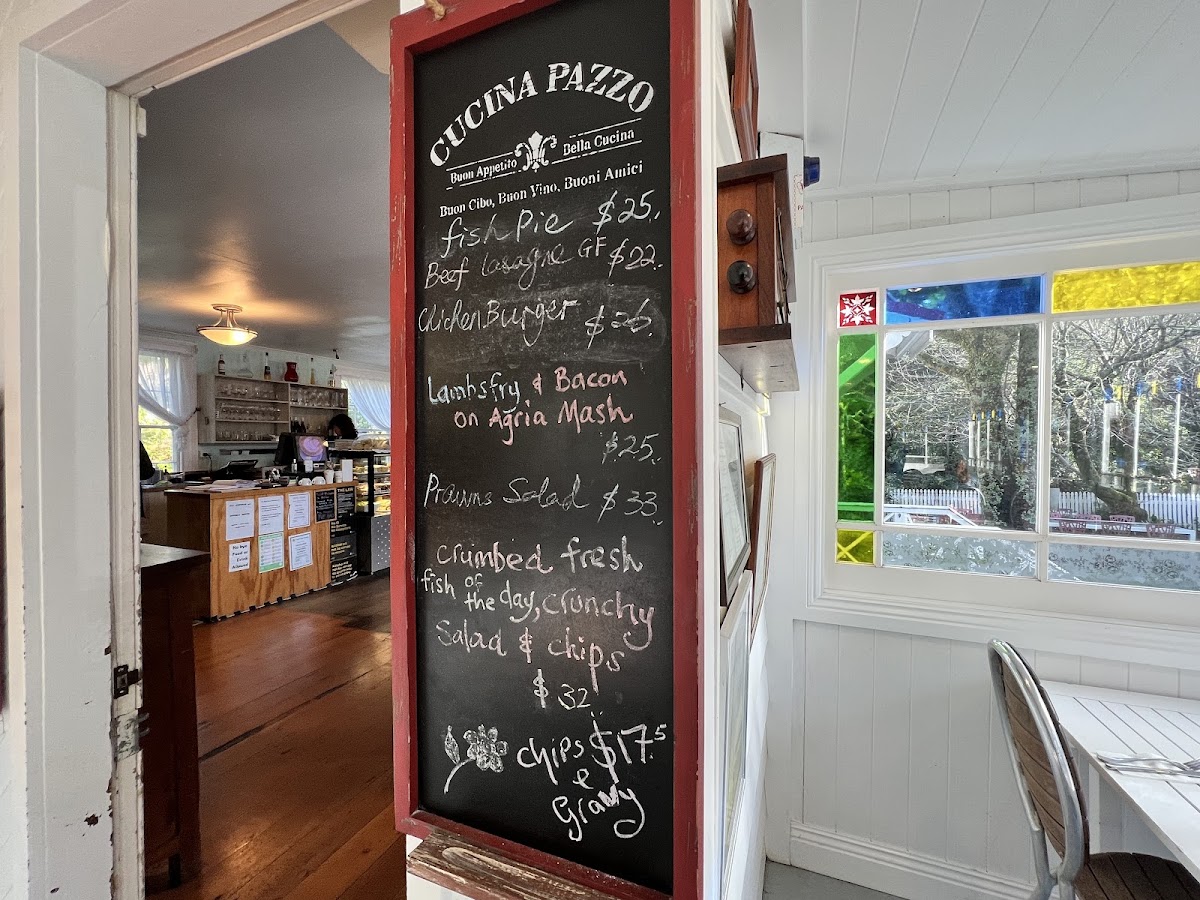 CUCINA PAZZO
Buon Appetito Bella Cucina
Buon Cibo, Buon Vino, Buoni Amici
fish Pie $25.
Beef lasagne GF $22.
Chicken Burger $26.
Lambsfry & Bacon
on Agria Mash
$25.
Prawns Salad $33.
Crumbed fresh
fish of the day, crunchy
Salad & chips
$32
chips $17.5
e
Gravy